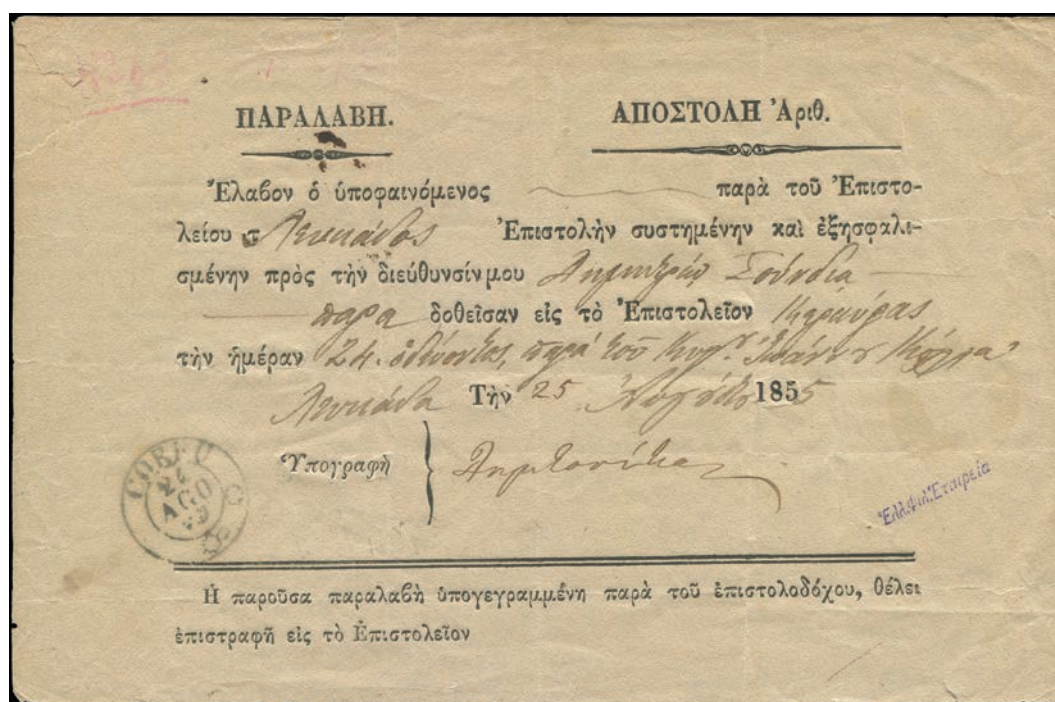 ΠΑΡΑΛΑΒΗ.
ΑΠΟΣΤΟΛΗ Ἀριθ.
Ἔλαβον ὁ ὑποφαινόμενος παρὰ τοῦ Ἐπιστο-
λείου τ Λευκάδος Ἐπιστολὴν συστημένην καὶ ἐξησφαλι-
σμένην πρὸς τὴν διεύθυνσίν μου Δημήτριον
παρα δοθεῖσαν εἰς τὸ Ἐπιστολεῖον Κερκύρας
τὴν ἡμέραν 24. ὁδεύοντος, παρὰ τοῦ Κυρ. Ἰωάννου
Λευκάδα Τὴν 25 Αὐγούστου 1855
Ὑπογραφὴ
CORFU
24
AGO
Ἑλλ.Φιλ.Ἑταιρεία
Ἡ παροῦσα παραλαβὴ ὑπογεγραμμένη παρὰ τοῦ ἐπιστολοδόχου, θέλει
ἐπιστραφῆ εἰς τὸ Ἐπιστολεῖον